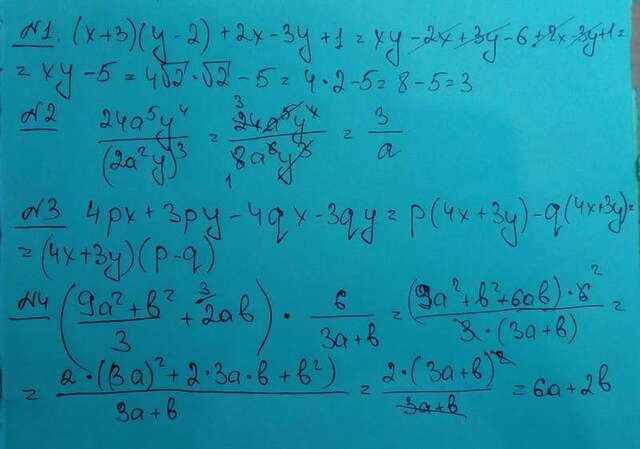 №1. (x+3)(y-2)+2x-3y+1=xy-2x+3y-6+2x-3y+1=
=xy-5=4√2·√2-5=4·2-5=8-5=3
№2 24a⁵y⁴/(2a²y)³ = ³24a⁵y⁴/₁8a⁶y³ = 3/a
№3 4px+3py-4qx-3qy=p(4x+3y)-q(4x+3y)=
=(4x+3y)(p-q)
№4 ((9a²+b²)/3 + ³2ab) · 6/(3a+b) = (9a²+b²+6ab)·6²/3·(3a+b) =
= 2·((3a)²+2·3a·b+b²)/(3a+b) = 2·(3a+b)²/(3a+b) = 6a+2b